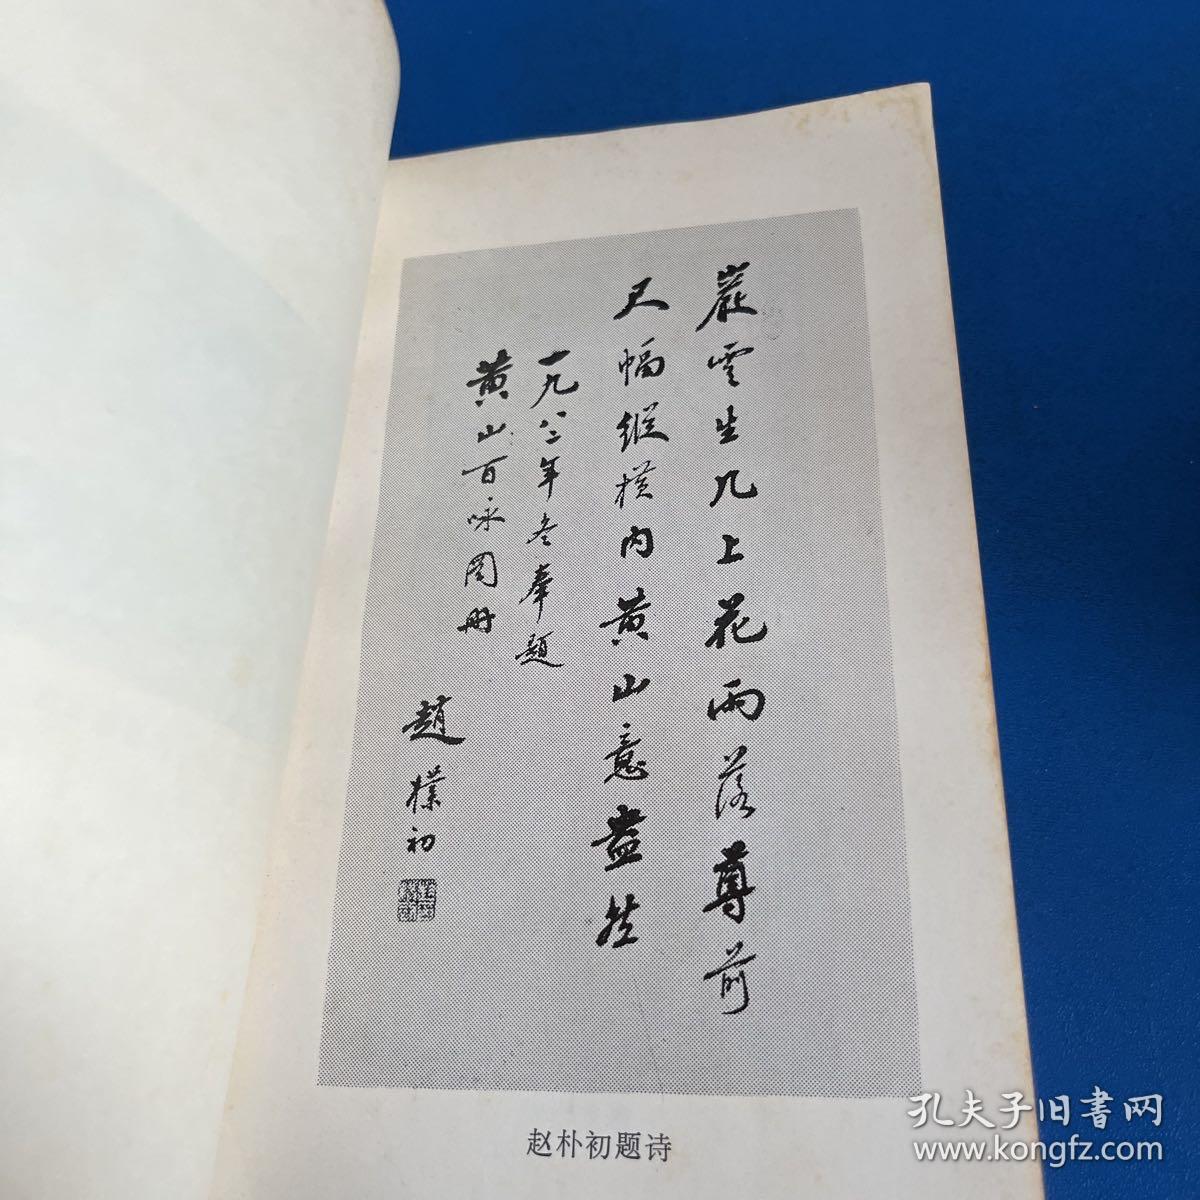 巖雲生几上花雨落尊前
尺幅縱橫内黄山意盎然
一九八二年冬奉題
黄山百咏圖册
趙樸初
赵朴初题诗
孔夫子旧書网
www.kongfz.com